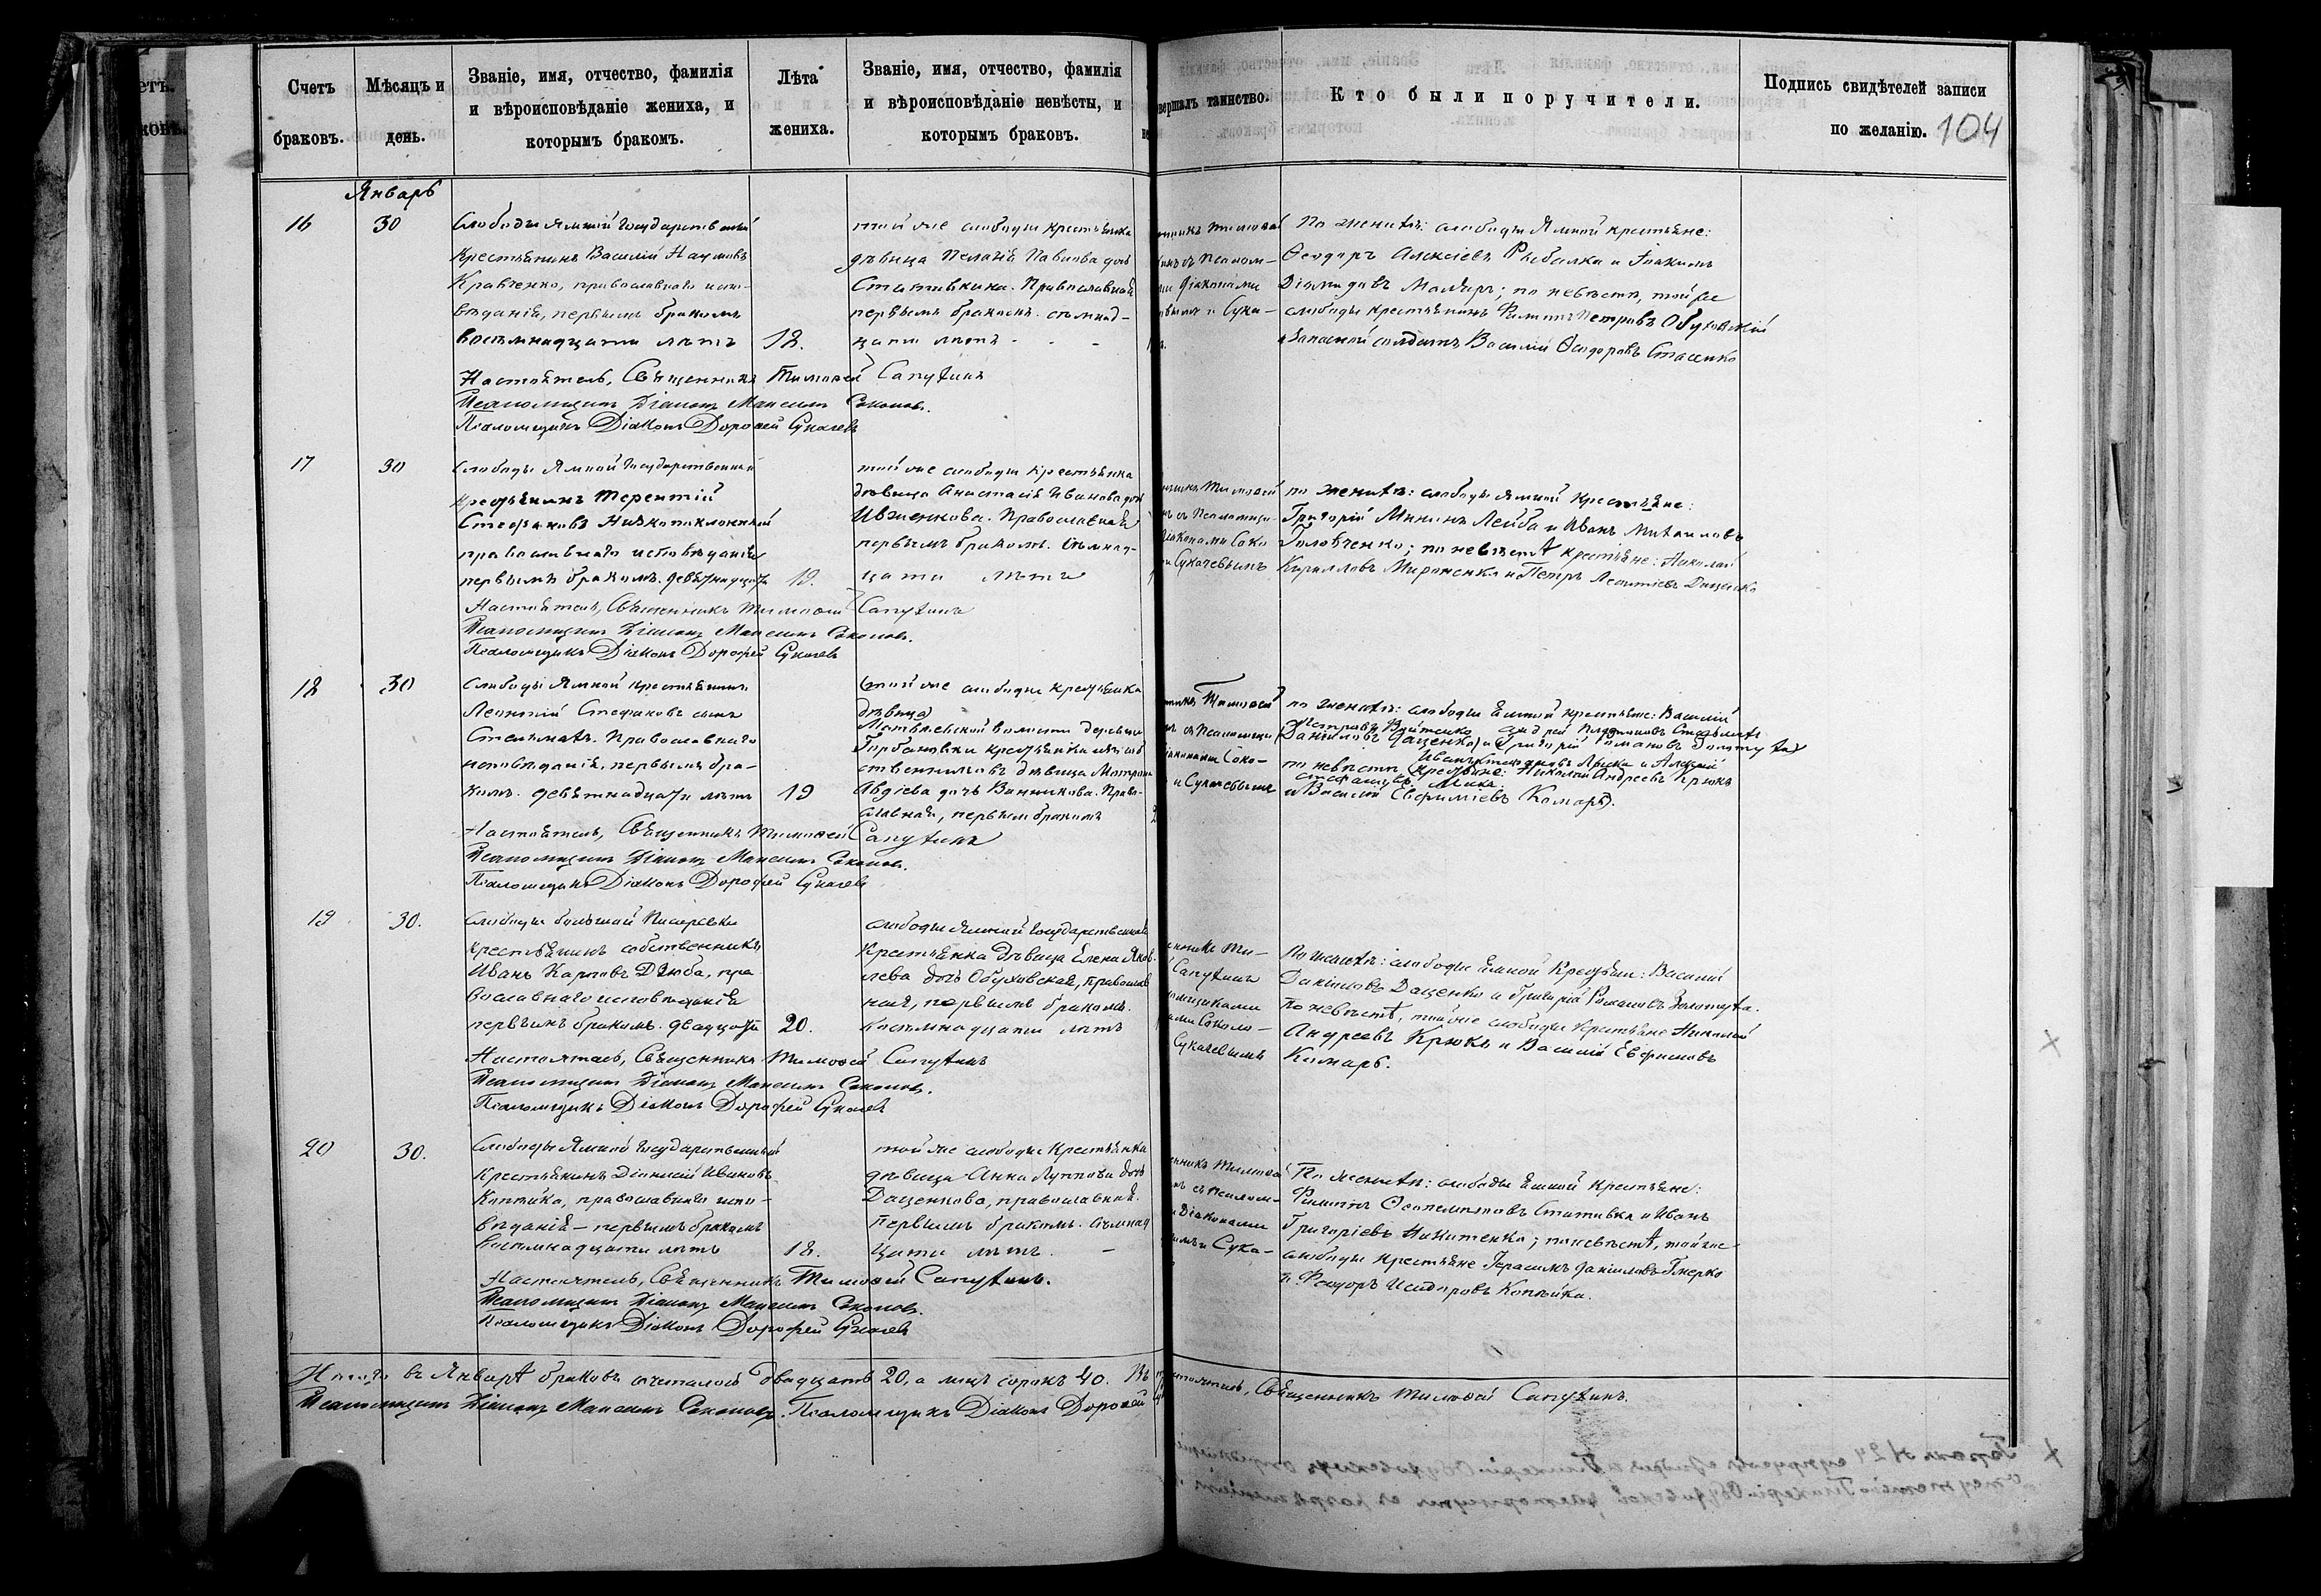 Счетъ
браковъ.
Мѣсяцъ и
день.
Званіе, имя, отчество, фамилія
и вѣроисповѣданіе жениха, и
которымъ бракомъ.
Лѣта
жениха.
Званіе, имя, отчество, фамилія
и вѣроисповѣданіе невѣсты, и
которымъ браковъ.
вершалъ таинство.
Кто были поручители.
Подпись свидѣтелей записи
по желанію.
104
Январь
16
30
Слободы Ямной Государственный
Крестьянинъ Василій Наумовъ
Кравченко, православнаго испо-
вѣданія, первымъ бракомъ
восемнадцати лѣтъ
18.
той же слободы крестьянка
дѣвица Пелагія Павлова дочь
Стативкина. Православная
первымъ бракомъ. семнад-
цати лѣтъ
По женихѣ: слободы Ямной крестьяне:
Ѳеодоръ Алексіевъ Рыбалка и Іоакимъ
Діомидовъ Маляръ; по невѣстѣ, той же
слободы крестьянинъ Филиппъ Петровъ Обуховскій
и Запасной солдатъ Василій Ѳеодоровъ Стасенко
Настоятель, Священникъ Тимоѳей Сапухинъ
Псаломщикъ Діаконъ Максимъ Соколовъ.
Псаломщикъ Діаконъ Дороѳей Сукачевъ
17
30
Слободы Ямной Государственный
Крестьянинъ Терентій
Стефановъ Низкопоклонный
православнаго исповѣданія
первымъ бракомъ. девятнадцати
19.
той же слободы крестьянка
дѣвица Анастасія Иванова дочь
Ивженкова. Православная
первымъ бракомъ. Семнад-
цати лѣтъ
по женихѣ: слободы Ямной крестьяне:
Григорій Мининъ Лейба и Иванъ Михаиловъ
Головченко; по невѣстѣ крестьяне: Николай
Кирилловъ Мироненко и Петръ Леонтіевъ Даценко
и Сукачевымъ
Настоятель, Священникъ Тимоѳей Сапухинъ
Псаломщикъ Діаконъ Максимъ Соколовъ.
Псаломщикъ Діаконъ Дорофей Сукачевъ
18
30
Слободы Ямной крестьянинъ
Леонтій Стефановъ сынъ
Стельмахъ. Православнаго
исповѣданія, первымъ бра-
комъ. девятнадцати лѣтъ
19
(той же слободы крестьянка
дѣвица)
волости деревни
Горбановки крестьянина
ственникъ дѣвица Матрона
Авдіева дочь Винникова. Право-
славная, первымъ бракомъ
по женихѣ: слободы Ямной крестьяне: Василій
Даніиловъ Даценко) и Григорій Романовъ Золотухa
по невѣстѣ крестьяне: Николай Андреевъ Крюкъ
и Василій Евфиміевъ Комаръ).
и Сукачевымъ
Настоятель, Священникъ Тимоѳей Сапухинъ
Псаломщикъ Діаконъ Максимъ Соколовъ.
Псаломщикъ Діаконъ Дорофей Сукачевъ
19
30.
Слободы большой Писаревки
крестьянинъ собственникъ
Иванъ Карповъ Дзюба, пра-
вославнаго исповѣданія
первымъ бракомъ. двадцати
20.
слободы Ямной Государственная
Крестьянка дѣвица Елена Яков-
лева дочь Обуховская, православ
ная, первымъ бракомъ.
восемнадцати лѣтъ
По женихѣ: слободы Ямной крестьяне: Василій
Даніиловъ Даценко и Григорій Романовъ Золотуха.
По невѣстѣ, той же слободы крестьяне Николай
Андреевъ Крюкъ и Василій Евфимовъ
Комаръ.
Сукачевымъ
Настоятель, Священникъ Тимоѳей Сапухинъ
Псаломщикъ Діаконъ Максимъ Соколовъ.
Псаломщикъ Діаконъ Дорофей Сукачевъ
20
30.
Слободы Ямной Государственный
Крестьянинъ Діонисій Ивановъ
Копѣйка, православнаго испо-
вѣданія — первымъ бракомъ
восемнадцати лѣтъ
18.
той же слободы Крестьянка
дѣвица Анна Луппова дочь
Даценкова, православная.
Первымъ бракомъ. Семнад
цати лѣтъ. —
По женихѣ: слободы Ямной крестьяне:
Филиппъ Стативка и Иванъ
Григоріевъ Никитенко; по невѣстѣ, той же
слободы крестьяне Герасимъ Даніиловъ Гмерко
и Феодоръ Исидоровъ Копѣйка.
Настоятель, Священникъ Тимоѳей Сапухинъ.
Псаломщикъ Діаконъ Максимъ Соколовъ.
Псаломщикъ Діаконъ Дорофей Сукачевъ
Итого въ Январѣ браковъ сочеталось двадцать 20, а лицъ сорокъ 40.
Священникъ Тимоѳей Сапухинъ.
Псаломщикъ Діаконъ Максимъ Соколовъ. Псаломщикъ Діаконъ Дороѳей